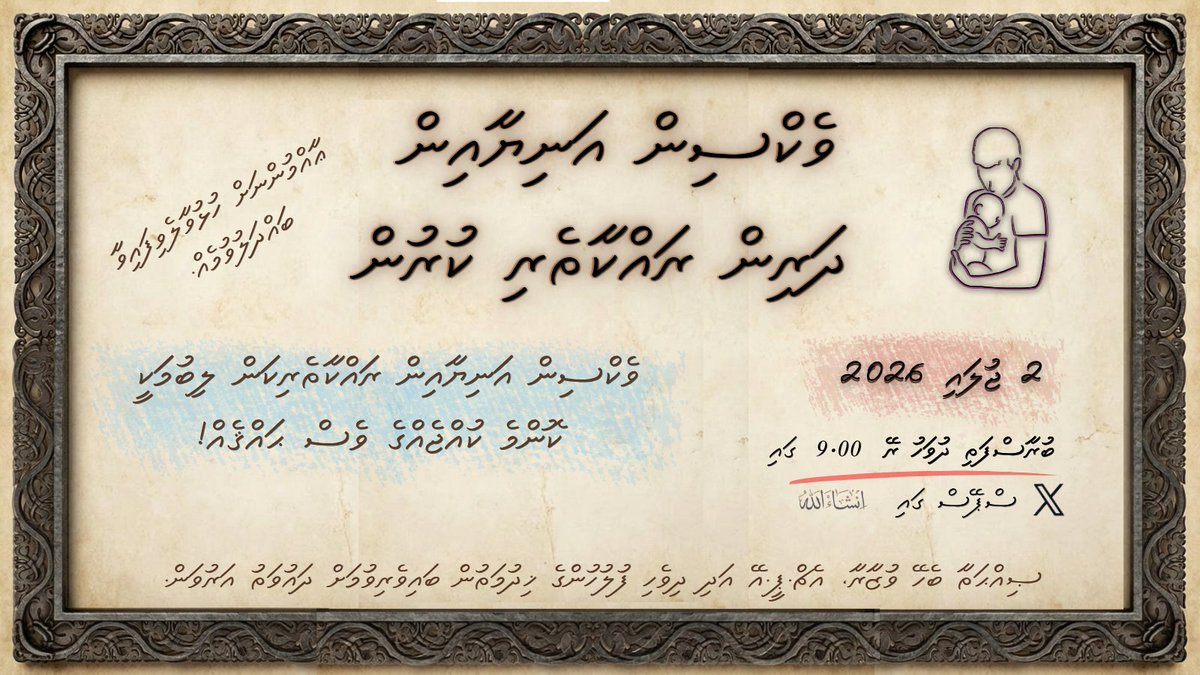 ވެކްސިން އަނިޔާއިން
ދަރިން ރައްކާތެރި ކުރުން
އާއްމުންނަށް ހުޅުވާލެވިފައިވާ
ބައްދަލުވުމެއް.
ވެކްސިން އަނިޔާއިން ރައްކާތެރިކަން ލިބުމަކީ
ކޮންމެ ކުއްޖެއްގެ ވެސް ޙައްޤެއް!
2 ޖުލައި 2026
ބުރާސްފަތި ދުވަހު ރޭ 9.00 ގައި
X ސްޕޭސް ގައި إنشاءالله
ޞިއްޙަތާ ބެހޭ ވުޒާރާ، އެޗް.ޕީ.އޭ އަދި ދިވެހި ފުލުހުންގެ ޚިދުމަތުން ބައިވެރިވުމަށް ދައުވަތު އަރުވަން.